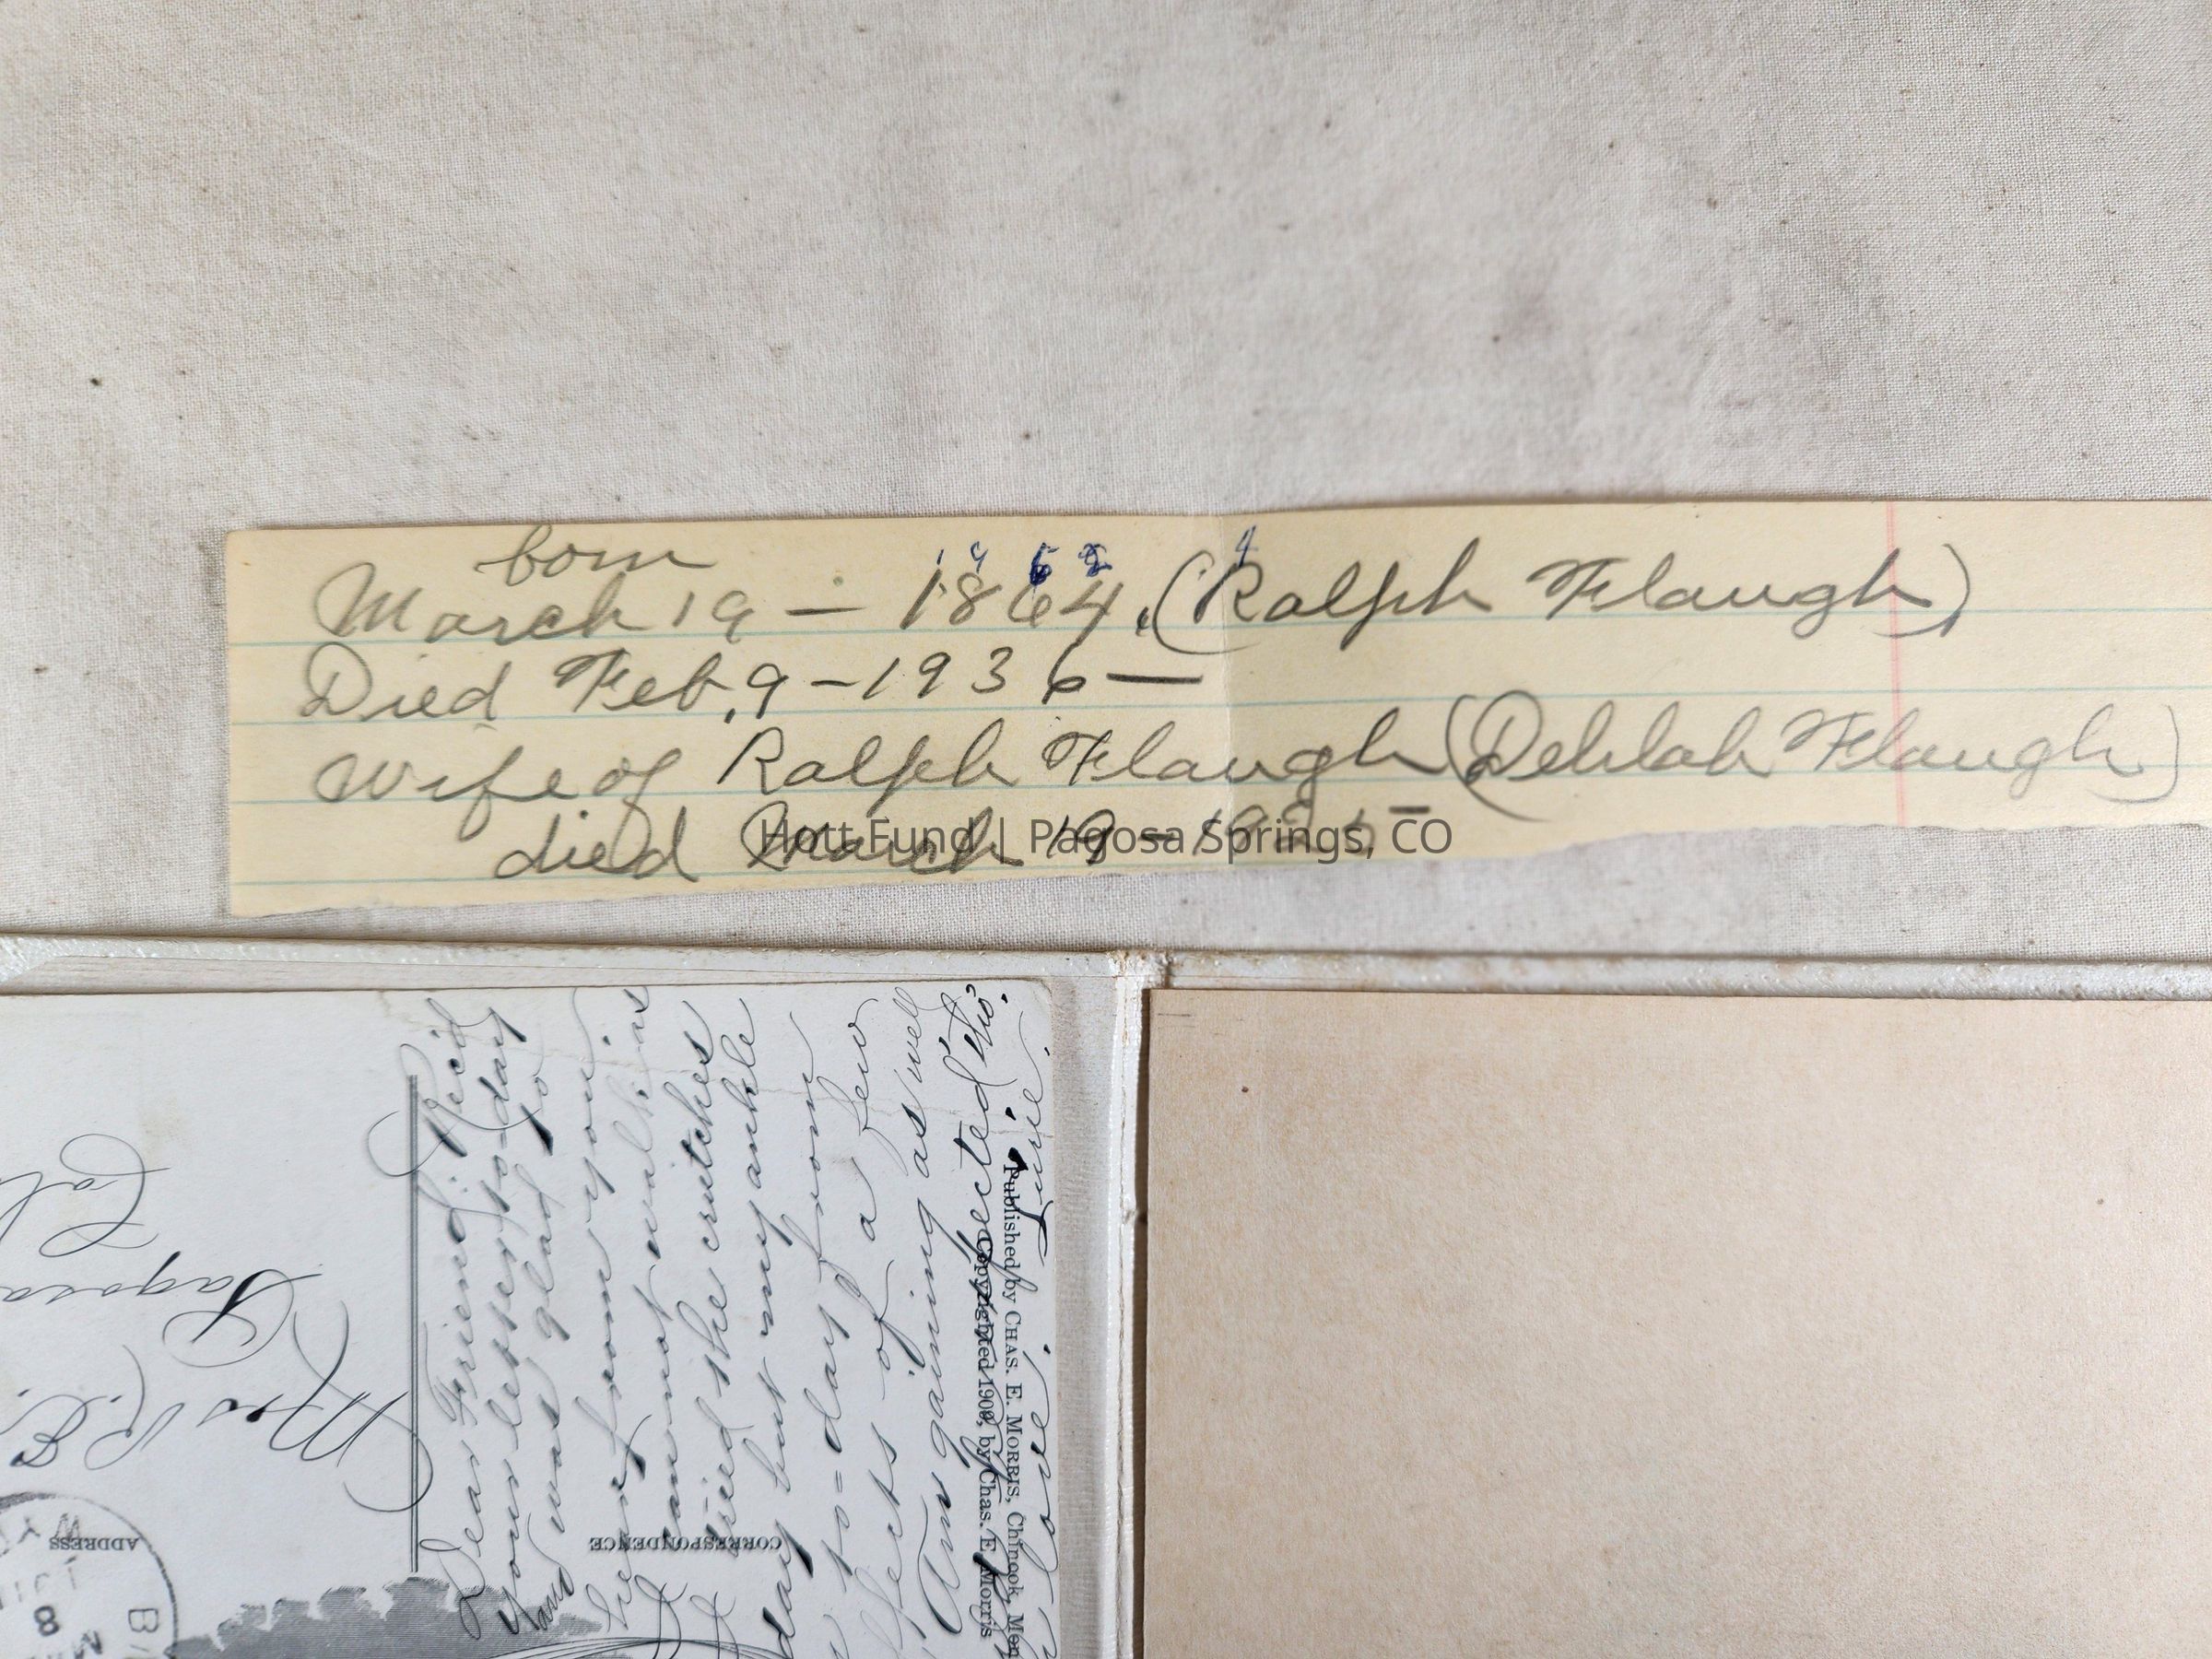 born
March 19 – 1864. (Ralph Flaugh)
Died Feb, 9 – 1936 —
Wife of Ralph Flaugh (Delilah Flaugh)
died March 19 –
Hott Fund | Pagosa Springs, CO
Dear Friend: Rec'd
your letter to-day
and was glad to
hear from you.
cannot walk as
I tried the crutches
day but my ankle
to=day from
effects of a few
Am gaining as well
expected tho'.
love. Lurie.
Published by CHAS. E. MORRIS, Chinook, Mon
Copyrighted 1909, by Chas. E. Morris
CORRESPONDENCE
ADDRESS
Mrs R. E.
Pagosa
Col
8